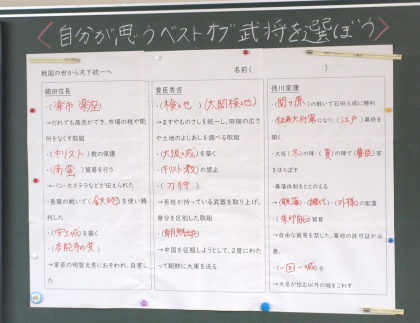 〈自分が思うベストオブ武将を選ぼう〉
戦国の世から天下統一へ
名前(　　　　　)
織田信長
・(楽市・楽座)
→だれでも商売ができ、市場の税や関
所をなくす取組
・(キリスト)教の保護
・(南蛮)貿易を行う
→パン・カステラなどが伝えられた
・長篠の戦いで(鉄砲)を使い勝
利した
・(安土城)を築く
・(本能寺の変)
→家臣の明智光秀におそわれ、自害し
た
豊臣秀吉
・(検地)(太閤検地)
→ますやものさしを統一し、田畑の広さ
や土地のよしあしを調べる取組
・(大阪城)を築く
・(キリスト教)の禁止
・(刀狩)
→百姓が持っている武器を取り上げ、
身分を区別した取組
・(朝鮮出兵)
→中国を征服しようとして、2度にわた
って朝鮮に大軍を送る
徳川家康
・(関ヶ原)の戦いで石田三成に勝利
・(征夷大将軍)になり、(江戸)幕府を開
く
・大坂(冬)の陣・(夏)の陣で(豊臣)家
をほろぼす
・幕藩体制をととのえる
→(親藩)(譜代)(外様)の配置
・(朱印船)貿易
→自由な貿易を禁じた。幕府の許可証が必
要。
・(一国一城)令
→大名が住む以外の城をこわす